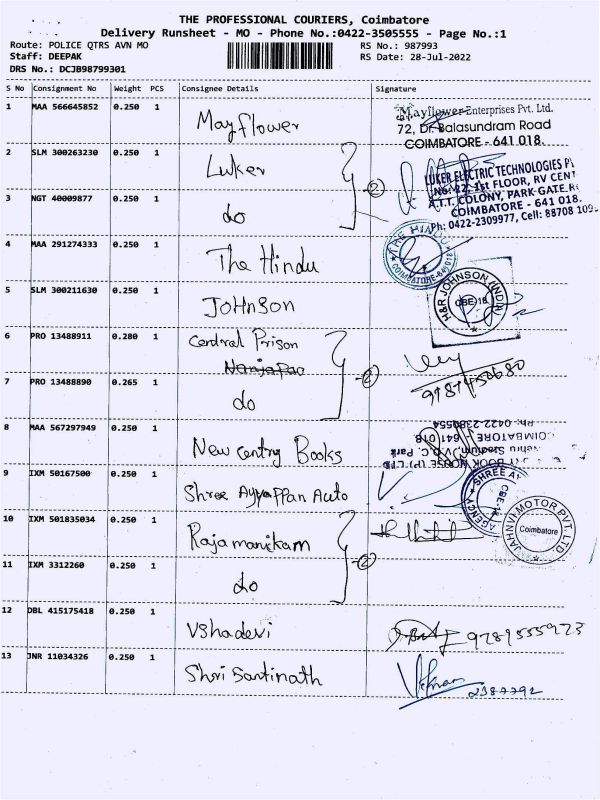 THE PROFESSIONAL COURIERS, Coimbatore
Delivery Runsheet - MO - Phone No.:0422-3505555 - Page No.:1
Route: POLICE QTRS AVN MO RS No.: 987993
Staff: DEEPAK RS Date: 28-Jul-2022
DRS No.: DCJB98799301
S No Consignment No Weight PCS Consignee Details Signature
1 MAA 566645852 0.250 1 Mayflower
Mayflower Enterprises Pvt. Ltd.
72, Dr. Balasundram Road
COIMBATORE - 641 018.
2 SLM 300263230 0.250 1 Luker
LUKER ELECTRIC TECHNOLOGIES
No. 22, 1st FLOOR, RV CENT
A.T.T. COLONY, PARK GATE R
COIMBATORE - 641 018.
Ph: 0422-2309977, Cell: 88708 109
3 NGT 40009877 0.250 1 do
2
4 MAA 291274333 0.250 1 The Hindu
THE HINDU
COIMBATORE-641018
5 SLM 300211630 0.250 1 Johnson
H&R JOHNSON (INDIA)
CBE-18
6 PRO 13488911 0.280 1 Central Prison
Nanjapao
7 PRO 13488890 0.265 1 do
2
8 MAA 567297949 0.250 1 New Centry Books
Ph: 0422-2380554
COIMBATORE - 641 018
Nehru Stadium V.O.C. Park
BOOK HOUSE (P) LTD
9 IXM 50167500 0.250 1 Shree Ayyappan Auto
SHREE AY
AGENCY
CBE-18
10 IXM 501835034 0.250 1 Rajamanikam
JAHNVI MOTOR PVT. LTD
Coimbatore
11 IXM 3312260 0.250 1 do
2
12 DBL 415175418 0.250 1 Vshadevi
9789555923
13 JNR 11034326 0.250 1 Shri Santinath
2387792